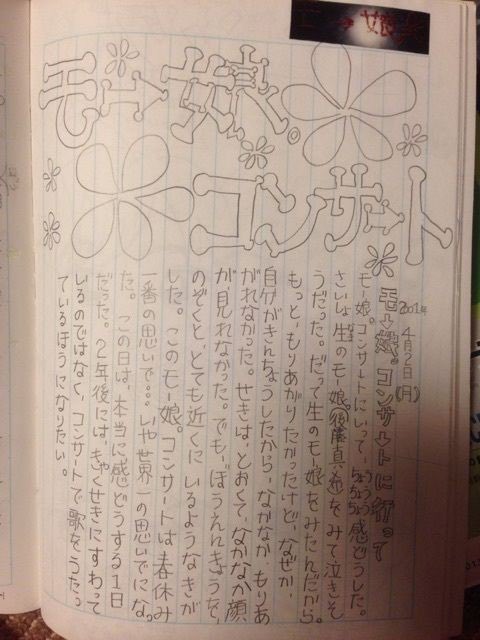 モー娘。
コンサート
2001年
4月2日(月)
モー娘。コンサートに行って
モー娘。コンサートにいって、ちょうちょう感どうした。
さいしょ生のモー娘。(後藤真希)をみて泣きそ
うだった。だって生のモー娘をみたんだから。
もっと、もりあがりたかったけど、なぜか、
自分がきんちょうしたから、なかなか、もりあ
がれなかった。せきは、とおくて、なかなか顔
が、見れなかった。でも、ぼうえんきょうを、
のぞくと、とても近くにいるようなきが
した。このモー娘。コンサートは春休み
一番の思いで…。いや世界一の思いでになっ
た。この日は、本当に感どうする1日
だった。2年後には、きゃくせきにすわって
いるのではなく、コンサートで歌をうたっ
ているほうになりたい。